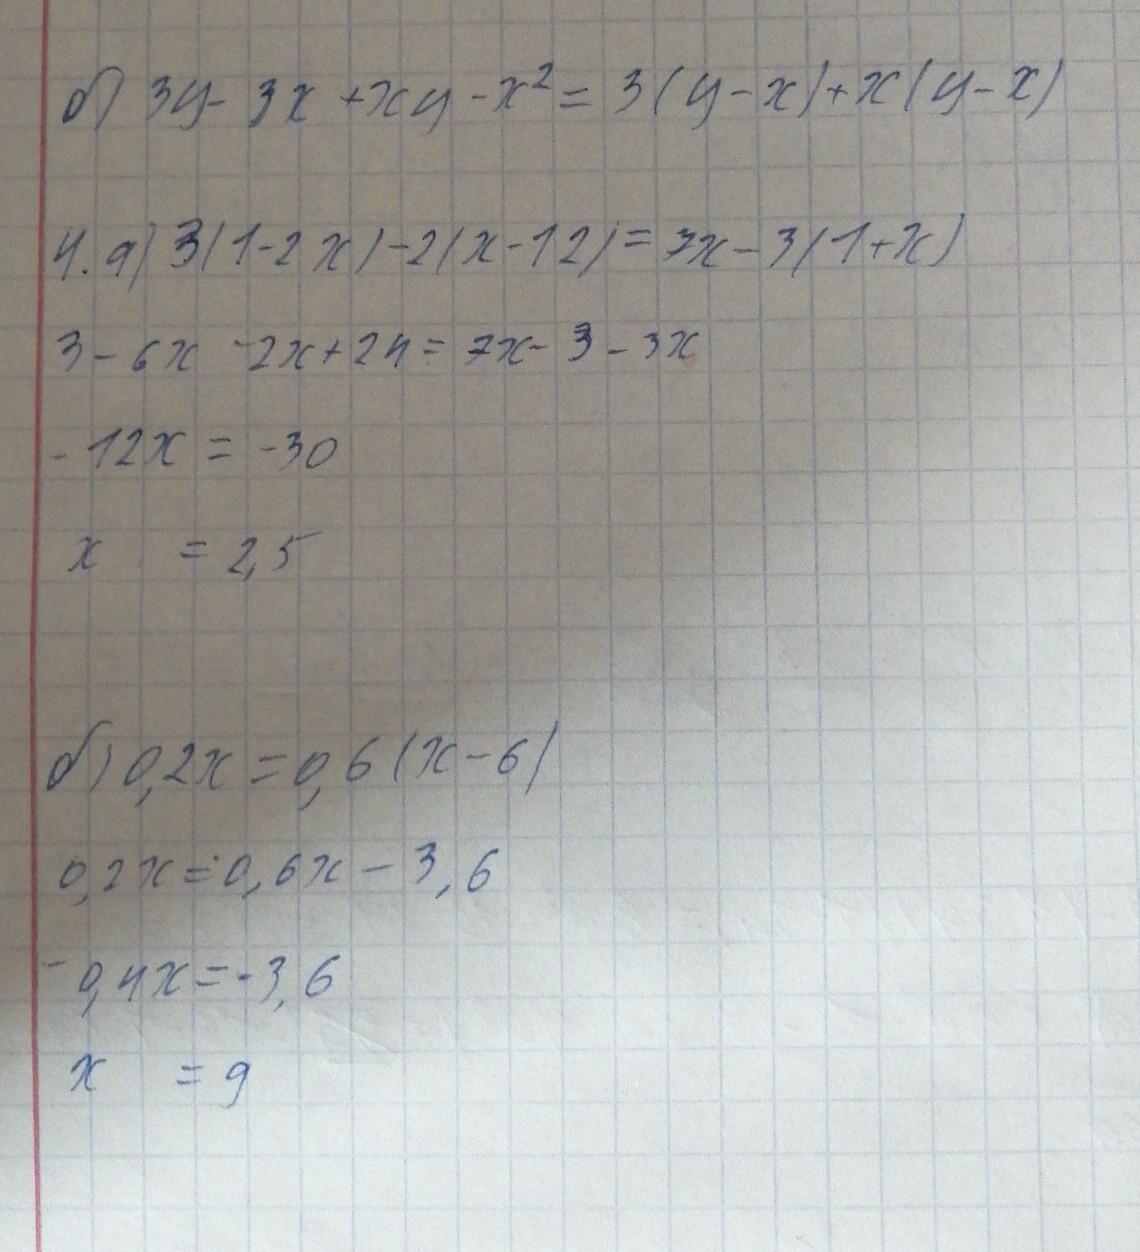 б) 3y - 3x + xy - x² = 3(y - x) + x(y - x)
4. а) 3(1 - 2x) - 2(x - 12) = 7x - 3(1 + x)
3 - 6x - 2x + 24 = 7x - 3 - 3x
- 12x = -30
x = 2,5
б) 0,2x = 0,6(x - 6)
0,2x = 0,6x - 3,6
- 0,4x = -3,6
x = 9